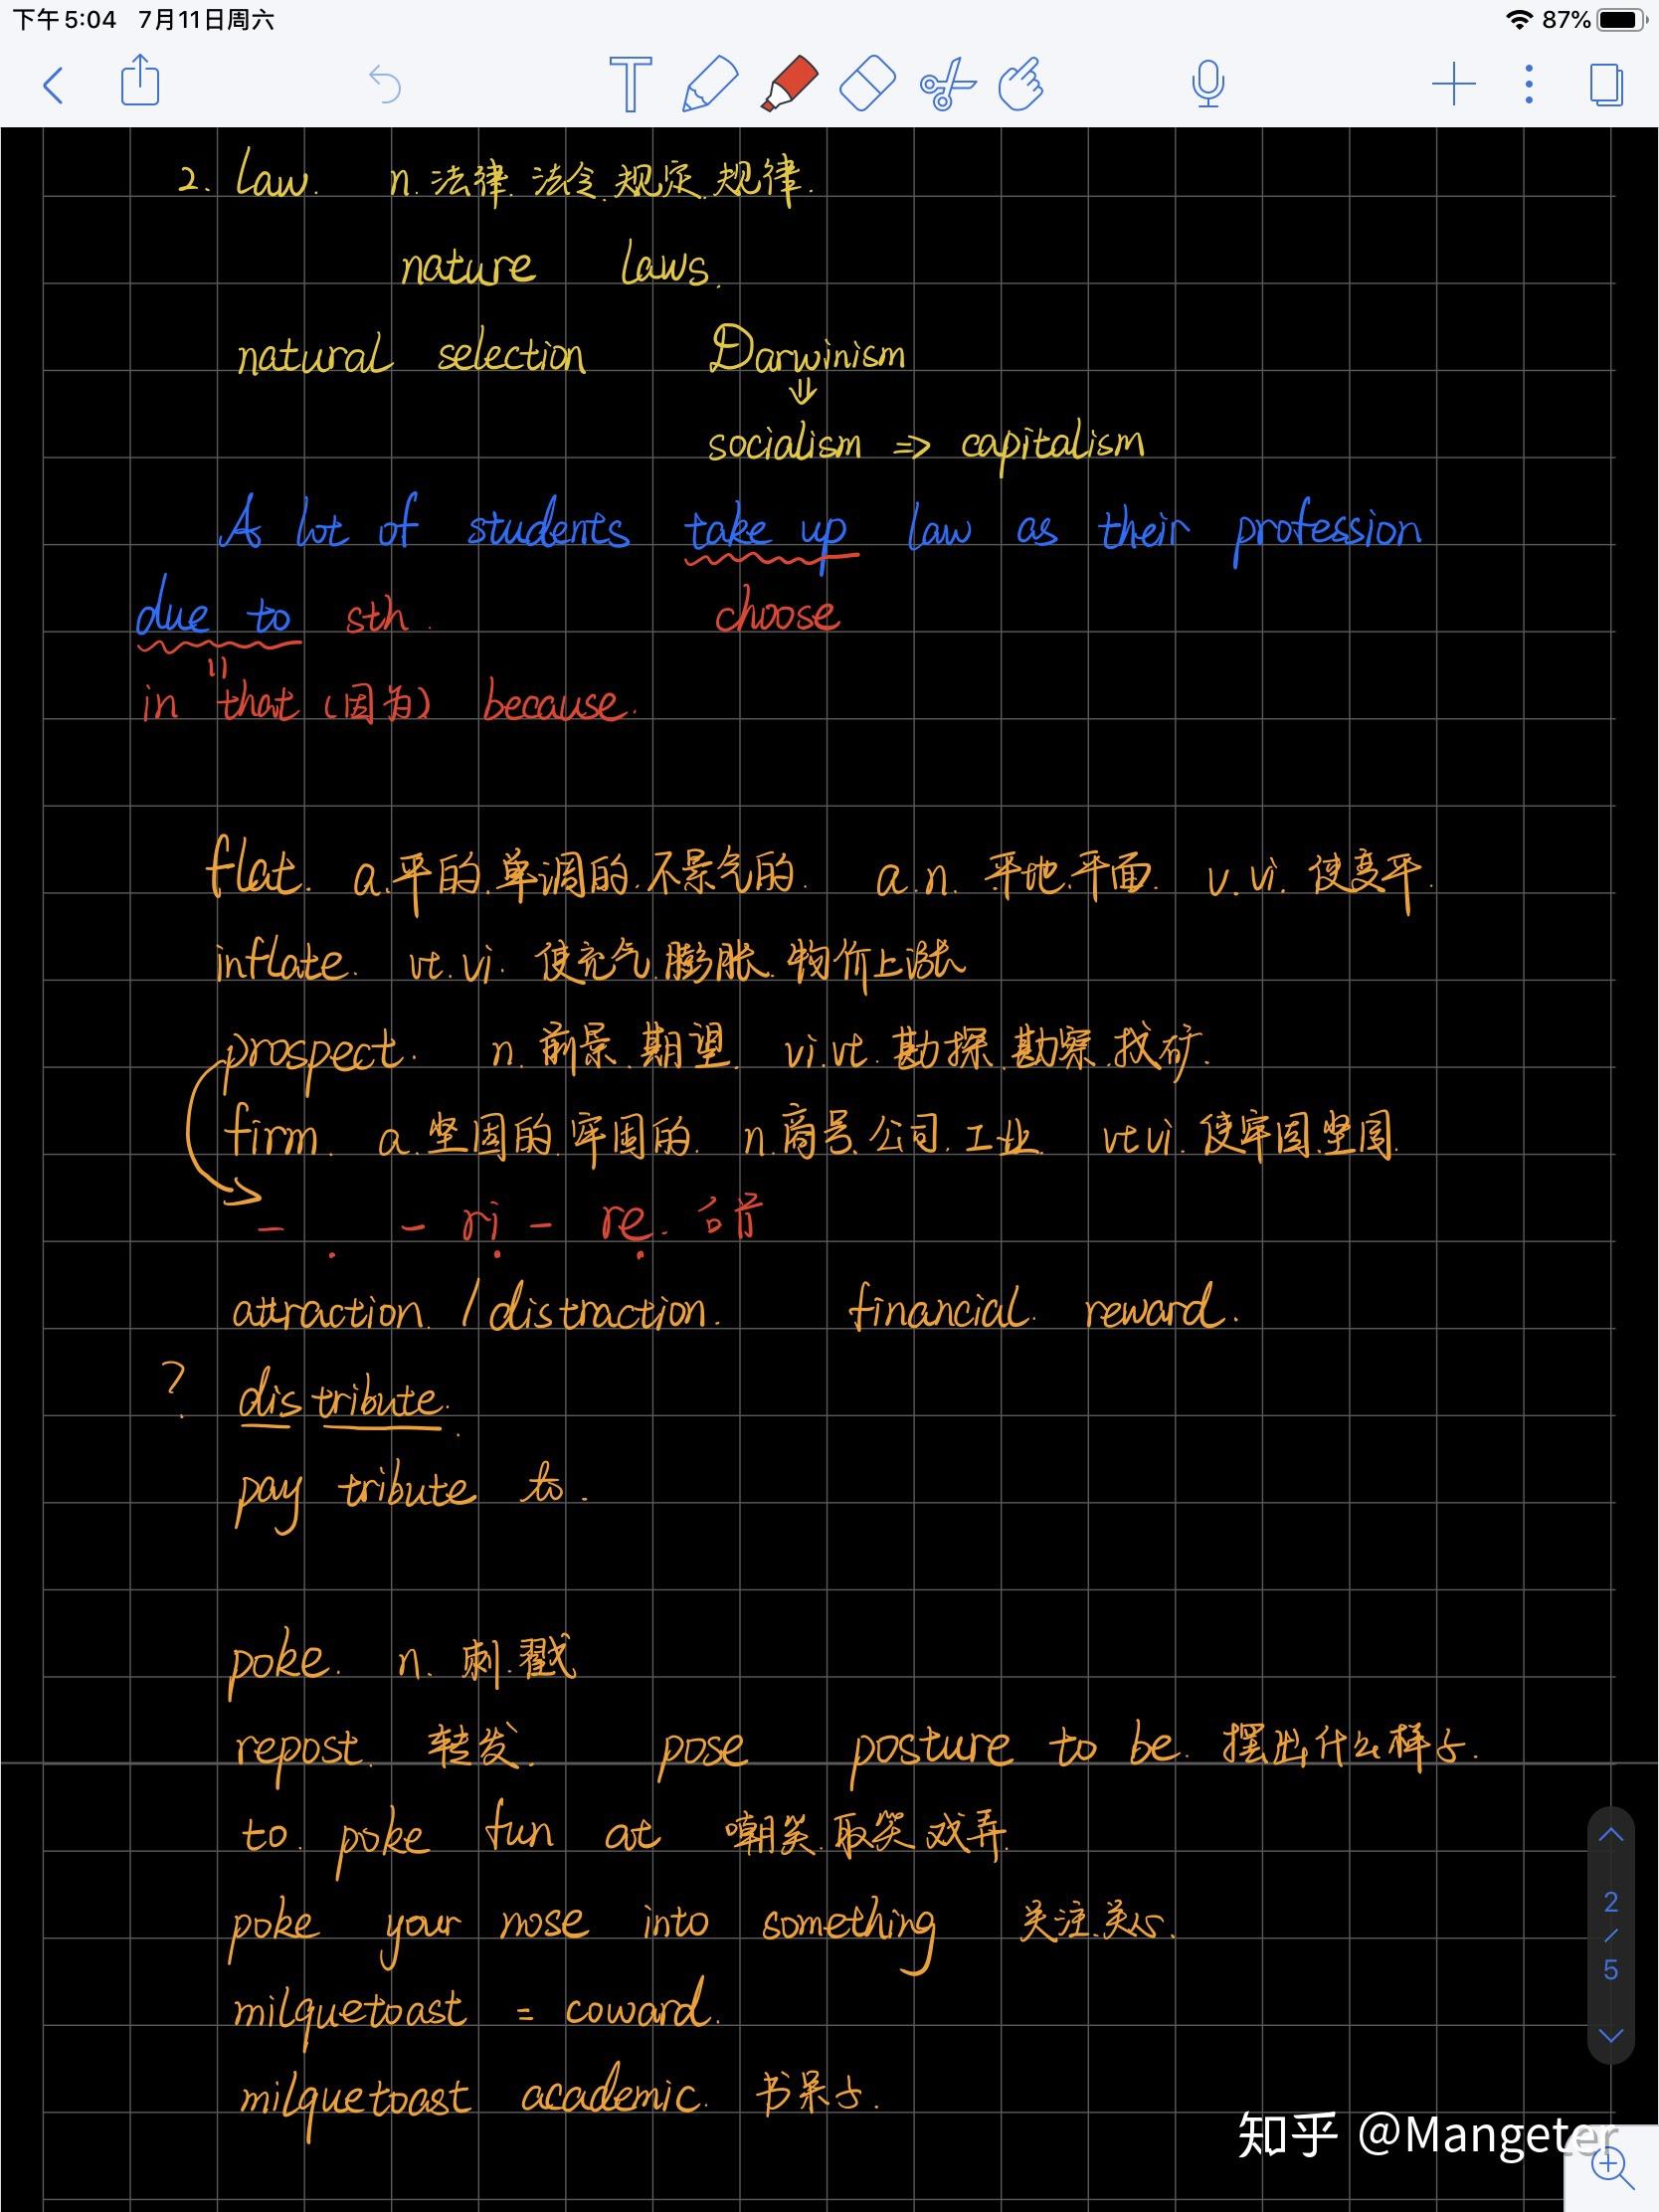 下午5:04 7月11日周六 87%
T
2. law. n. 法律. 法令. 规定. 规律.
nature laws.
natural selection Darwinism
⇓
socialism ⇒ capitalism
A lot of students take up law as their profession
due to sth. choose
in that (因为) because.
flat. a.平的.单调的.不景气的. a.n. 平地.平面. v.vi. 使变平.
inflate. vt.vi. 使充气.膨胀.物价上涨
prospect. n. 前景.期望. vi.vt. 勘探.勘察.找矿.
firm. a.坚固的.牢固的. n.商号.公司.工业. vt.vi. 使牢固.坚固.
- . - ri - re.
attraction. / distraction. financial reward.
? distribute.
pay tribute to.
poke. n. 刺.戳
repost. 转发. pose posture to be. 摆出什么样子.
to. poke fun at 嘲笑.取笑.戏弄.
poke your nose into something 关注.关心.
milquetoast = coward.
milquetoast academic. 书呆子.
2
/
5
知乎 @Mangeter